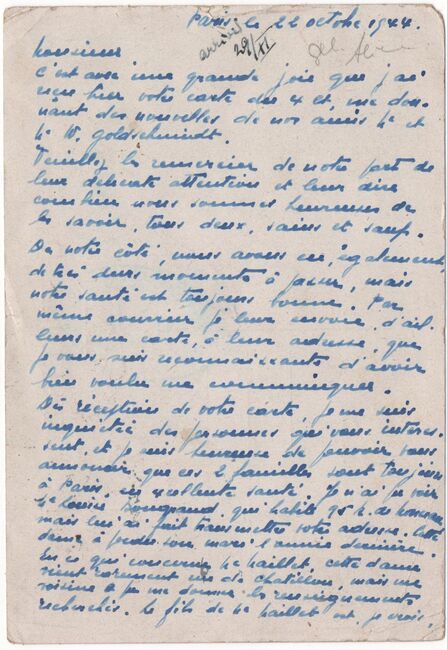 Paris, le 22 octobre 1944.
arrivée
29/XI
Monsieur
C'est avec une grande joie que j'ai
reçu hier votre carte du 4 ct, me don-
nant des nouvelles de nos amis Mr et
Me W. Goldschmidt.
Veuillez les remercier de notre part de
leur délicate attention et leur dire
combien nous sommes heureuses de
les savoir, tous deux, sains et saufs.
De notre côté, nous avons eu, également,
de très durs moments à passer, mais
notre santé est toujours bonne. Par
même courrier je leur envoie, d'ail-
leurs une carte, à leur adresse, que
je vous suis reconnaissante d'avoir
bien voulu me communiquer.
Dès réception de votre carte, je me suis
inquiétée des personnes qui vous intéres-
sent, et je suis heureuse de pouvoir vous
annoncer que ces 2 familles sont toujours
à Paris, en excellente santé. Je n'ai pu voir
Me Louise, qui habite 95 r. de
mais lui ai fait transmettre votre adresse. Cette
dame a perdu son mari l'année dernière.
En ce qui concerne Me Paillet, cette dame
vient rarement rue de Chatillon, mais une
voisine a pu me donner les renseignements
recherchés. Le fils de Me Paillet est, je crois,